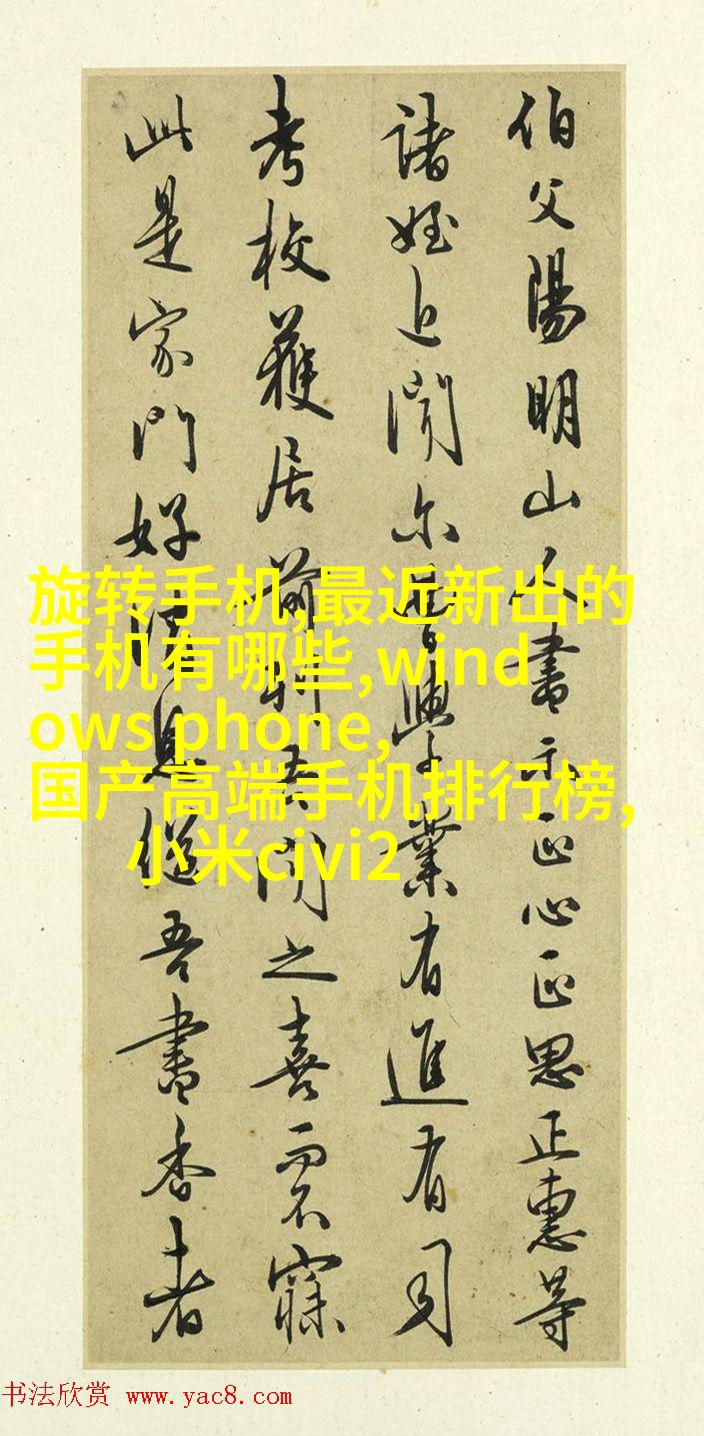 伯父陽明山人書示正心正思正惠等
諸姪近聞尔曹學業有進有司
考校獲居前列吾聞之喜而不寐
此是家門好消息繼吾書香者
旋转手机,最近新出的
手机有哪些,wind
ows phone,
国产高端手机排行榜,
小米civi2
书法欣赏 www.yac8.com